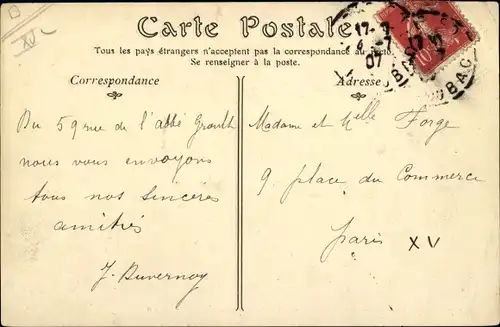 XV
Carte Postale
Tous les pays étrangers n'acceptent pas la correspondance au recto.
Se renseigner à la poste.
Correspondance
Adresse
17-7
6-7
07
BAC
Du 59 rue de l'abbé Groult
nous vous envoyons
tous nos sincères
amitiés
J. Duvernoy
Madame et Melle Forge
9. place du Commerce
Paris XV